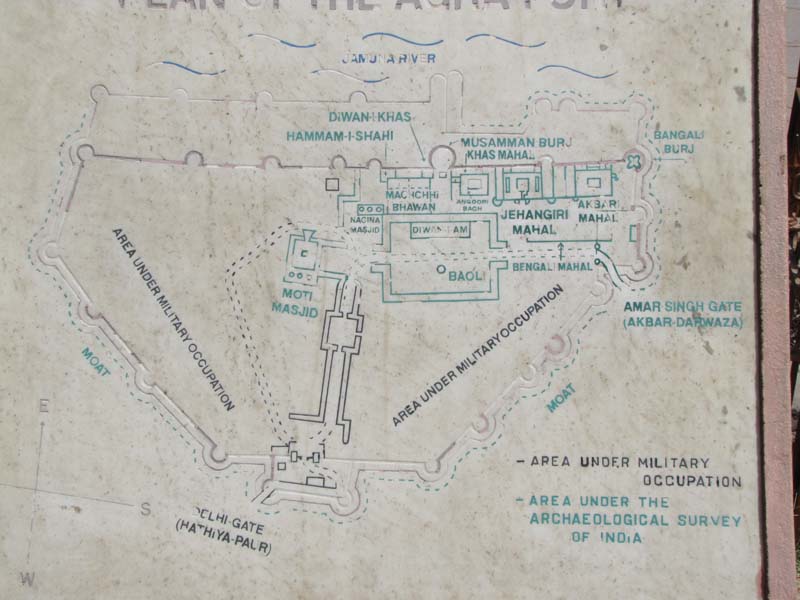 PLAN OF THE AGRA FORT
JAMUNA RIVER
DIWAN-I-KHAS
HAMMAM-I-SHAHI
MUSAMMAN BURJ
KHAS MAHAL
BANGALI
BURJ
MACHCHHI
BHAWAN
ANGOORI
BAGH
JEHANGIRI
MAHAL
AKBARI
MAHAL
NAGINA
MASJID
DIWAN-I-AM
BAOLI
BENGALI MAHAL
MOTI
MASJID
AMAR SINGH GATE
(AKBAR-DARWAZA)
AREA UNDER MILITARY OCCUPATION
AREA UNDER MILITARY OCCUPATION
MOAT
MOAT
E
S
W
DELHI-GATE
(HATHIYA-PAUR)
- AREA UNDER MILITARY
OCCUPATION
- AREA UNDER THE
ARCHAEOLOGICAL SURVEY
OF INDIA